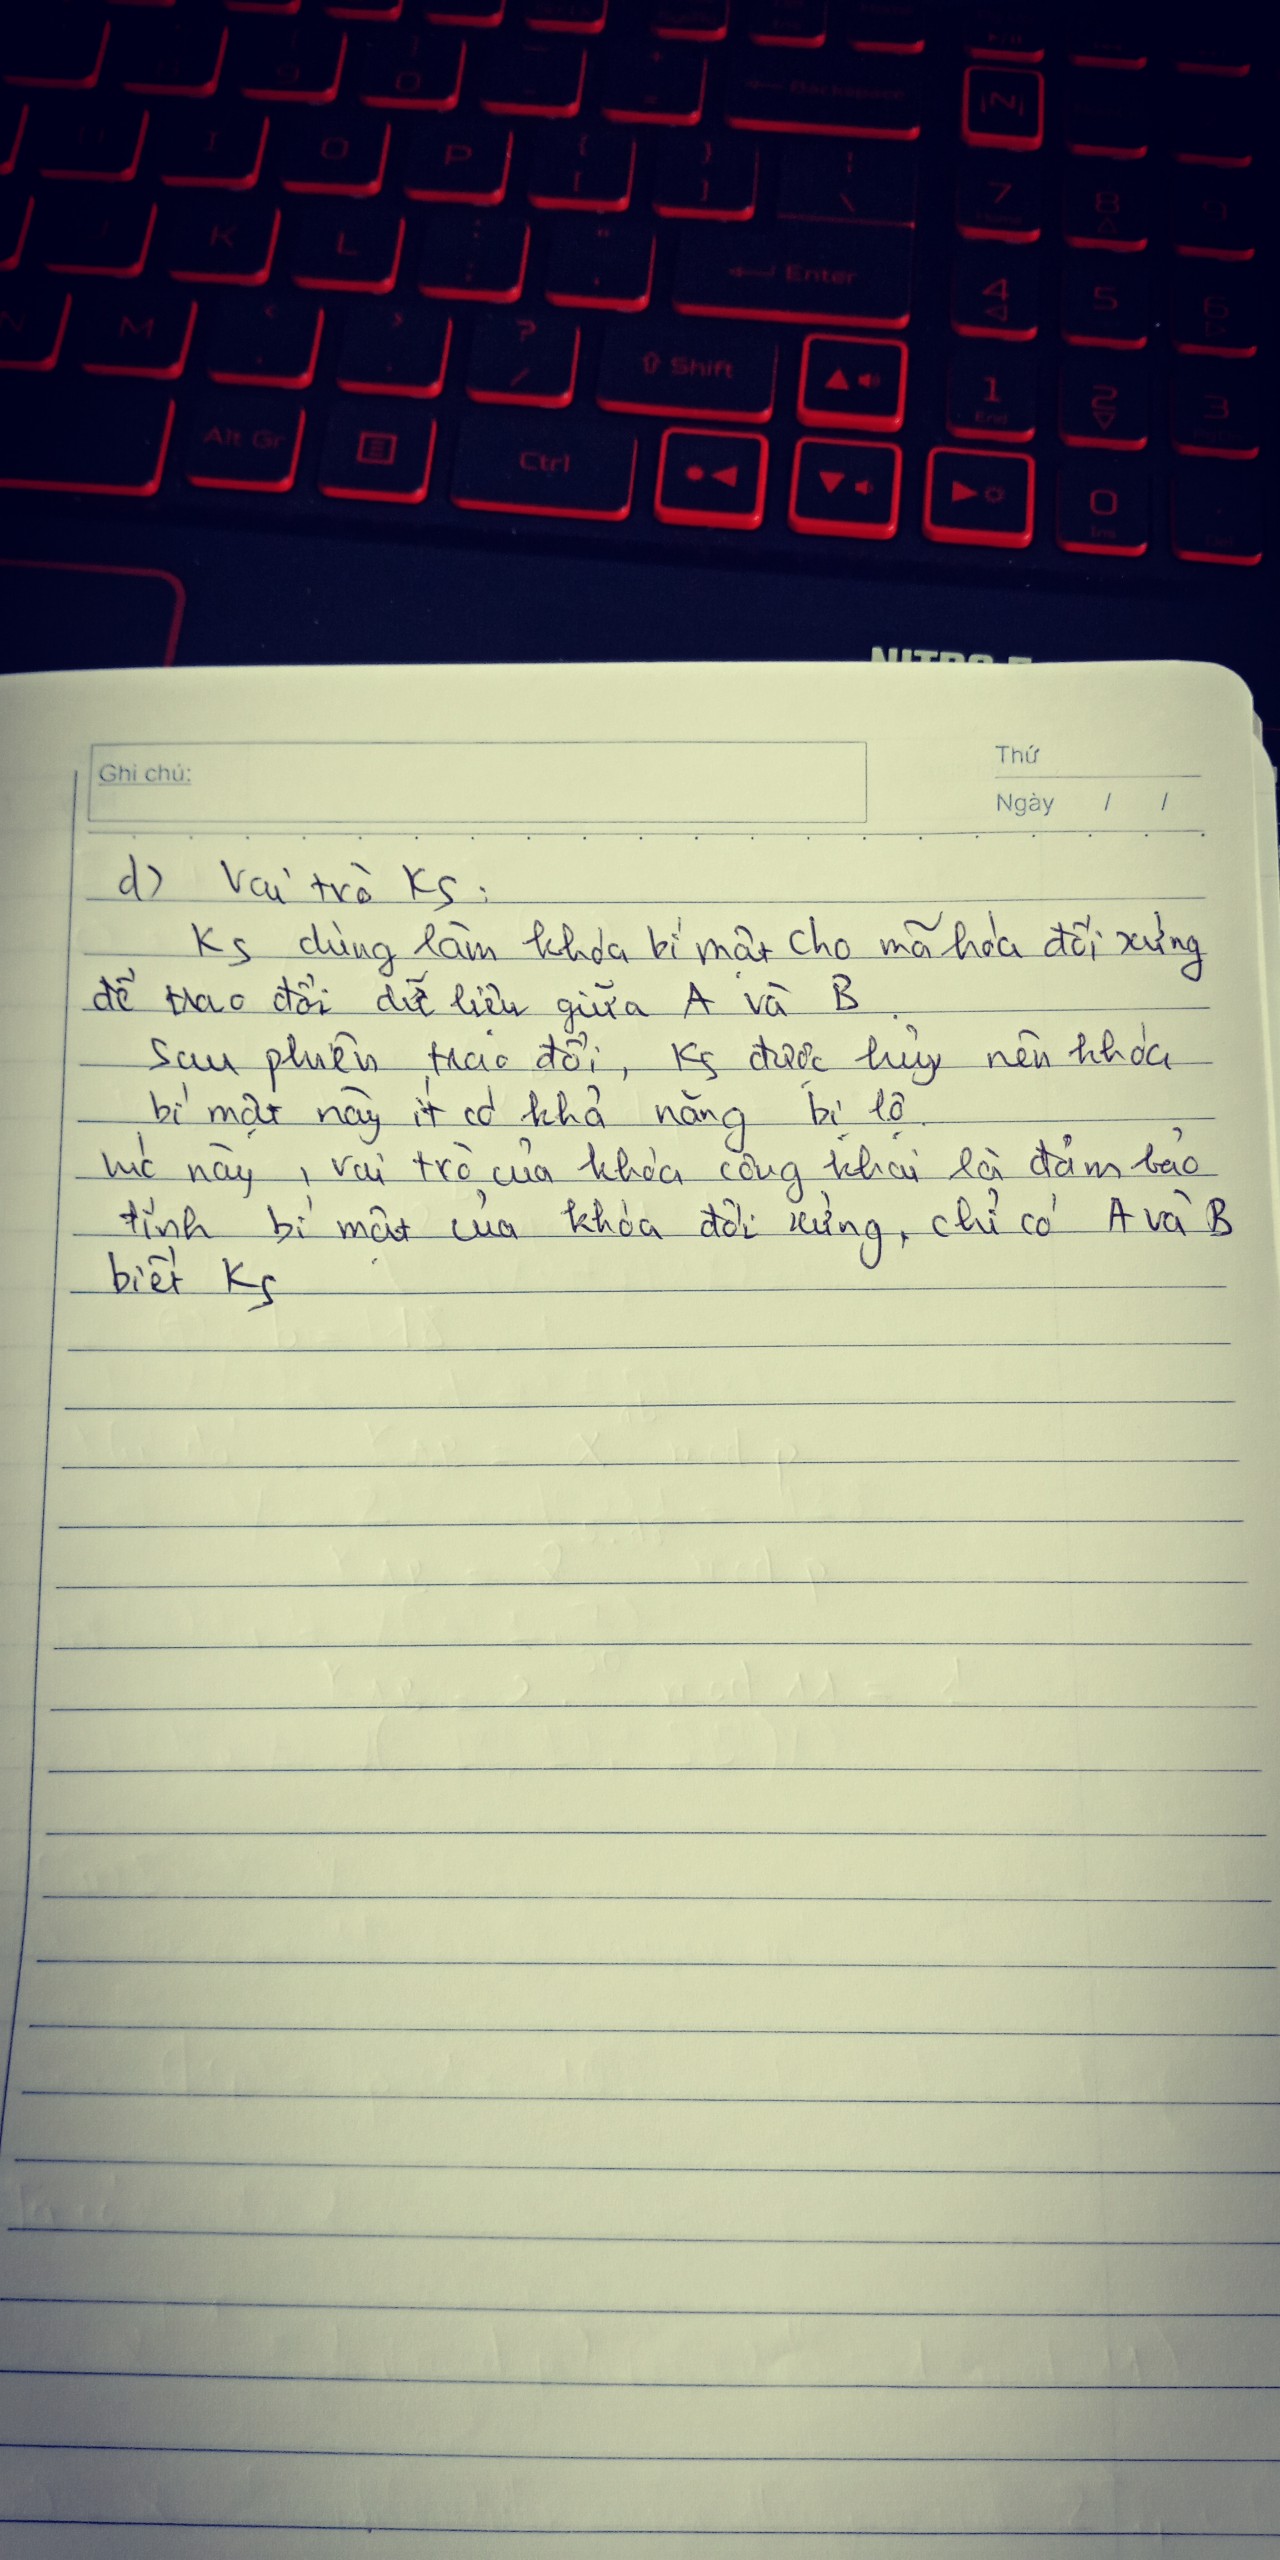 Backspace
O P { [ } ] | \
7 8
K L : ; " , Enter
4 5 6
M < , > . ? / Shift
1 End 2 3
Alt Gr Ctrl
0 Ins
Ghi chú:
Thứ
Ngày / /
d) Vai trò Ks:
Ks dùng làm khóa bí mật cho mã hóa đối xứng
để trao đổi dữ liệu giữa A và B.
Sau phiên trao đổi, Ks được hủy nên khóa
bí mật này ít có khả năng bị lộ.
lúc này, vai trò của khóa công khai là đảm bảo
tính bí mật của khóa đối xứng, chỉ có A và B
biết Ks